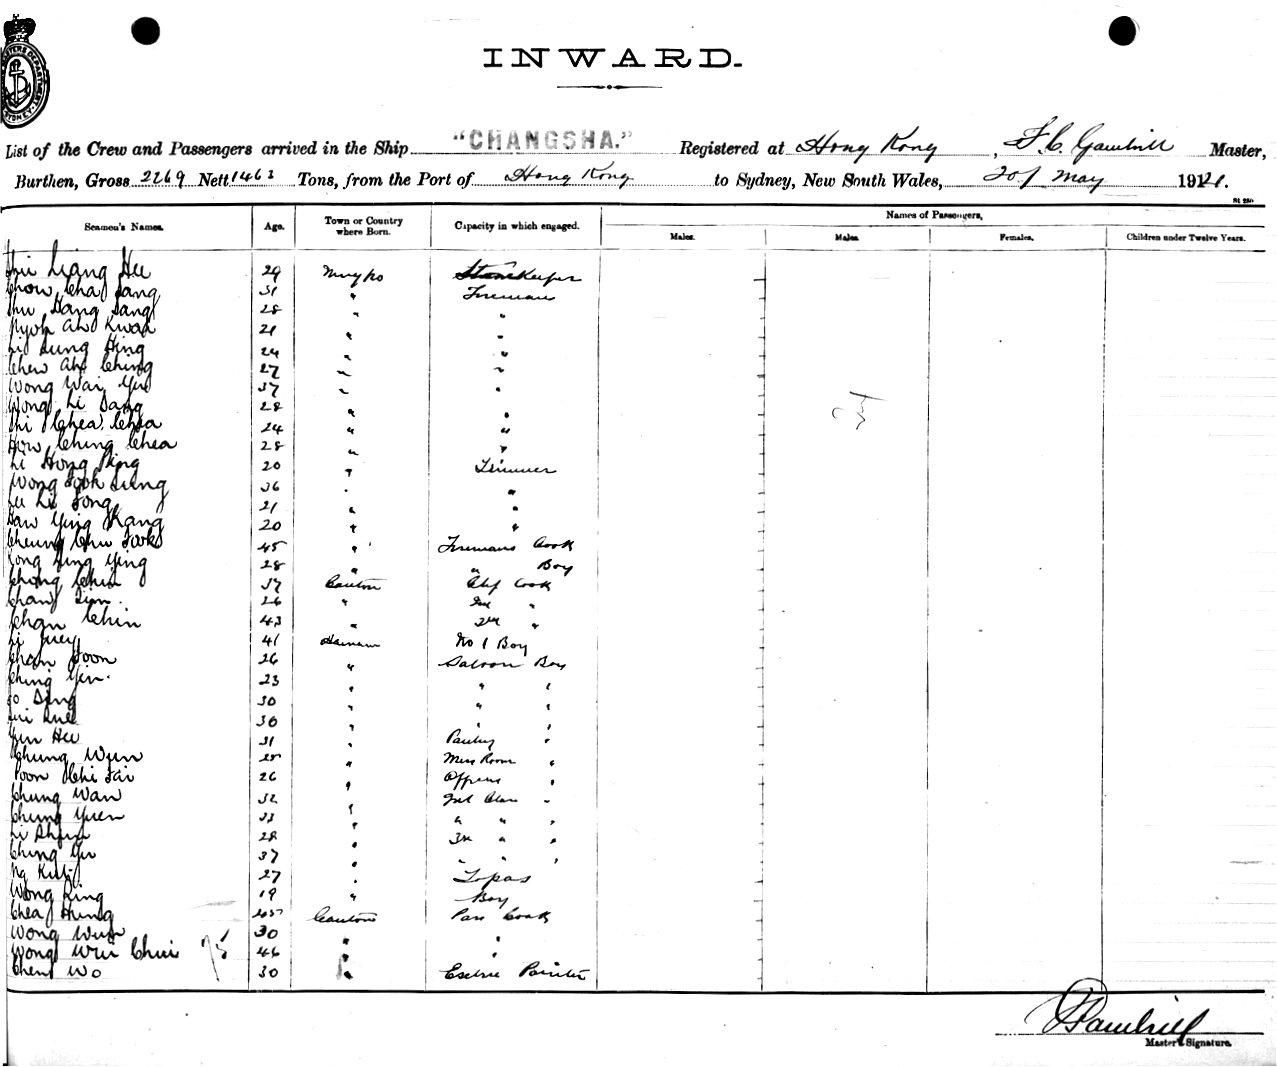 INWARD.
List of the Crew and Passengers arrived in the Ship "CHANGSHA." Registered at Hong Kong, F. C. Gambrill Master,
Burthen, Gross 2269 Nett 1463 Tons, from the Port of Hong Kong to Sydney, New South Wales, 20 / May 1921.
Names of Passengers,
Seamen's Names. Age. Town or Country where Born. Capacity in which engaged. Males. Males. Females. Children under Twelve Years.
Liang Hee 29 Ningpo Storekeeper
Chow Cha Sang 31 " Fireman
Shu Hang Sang 28 " "
Ah Kwai 21 " "
Li Sung Hing 24 " "
Chew Ah Ching 27 " "
Wong Wai Yu 37 " "
Wong Li Sang 28 " "
Shi Chea Chea 24 " "
How Ching Chea 28 " "
Li Hong Ping 20 " Trimmer
Wong Fook Sung 36 " "
Lu Li Tong 21 " "
Haw Ying Kang 20 " "
Cheung Chu Fook 45 " Firemans Cook
Ling Ying 28 " " Boy
Chong Chin 37 Canton Chf Cook
Chan Sim 26 " 2nd "
Chan Chin 43 " 3rd "
Li Juey 41 Hainam No 1 Boy
Chan Foon 26 " Saloon Boy
Ching Yin 23 " " "
Go Ding 30 " " "
30 " " "
Yun Hee 31 " Pantry "
Chung Wun 28 " Mess Room "
Poon Chi Fai 26 " Officers "
Chung Wan 32 " 2nd Class "
Chung Yuen 33 " " " "
Li Shing 28 " 3rd " "
Ching Yu 37 " " " "
Ng 27 " Topas
Wong Ling 19 " Boy
Chea Hung 45 Canton Pass Cook
Wong Wun 30 " "
Wong Wui Chui 46 " "
Chen Wo 30 " Painter
75
F C Gambrill
Master's Signature.